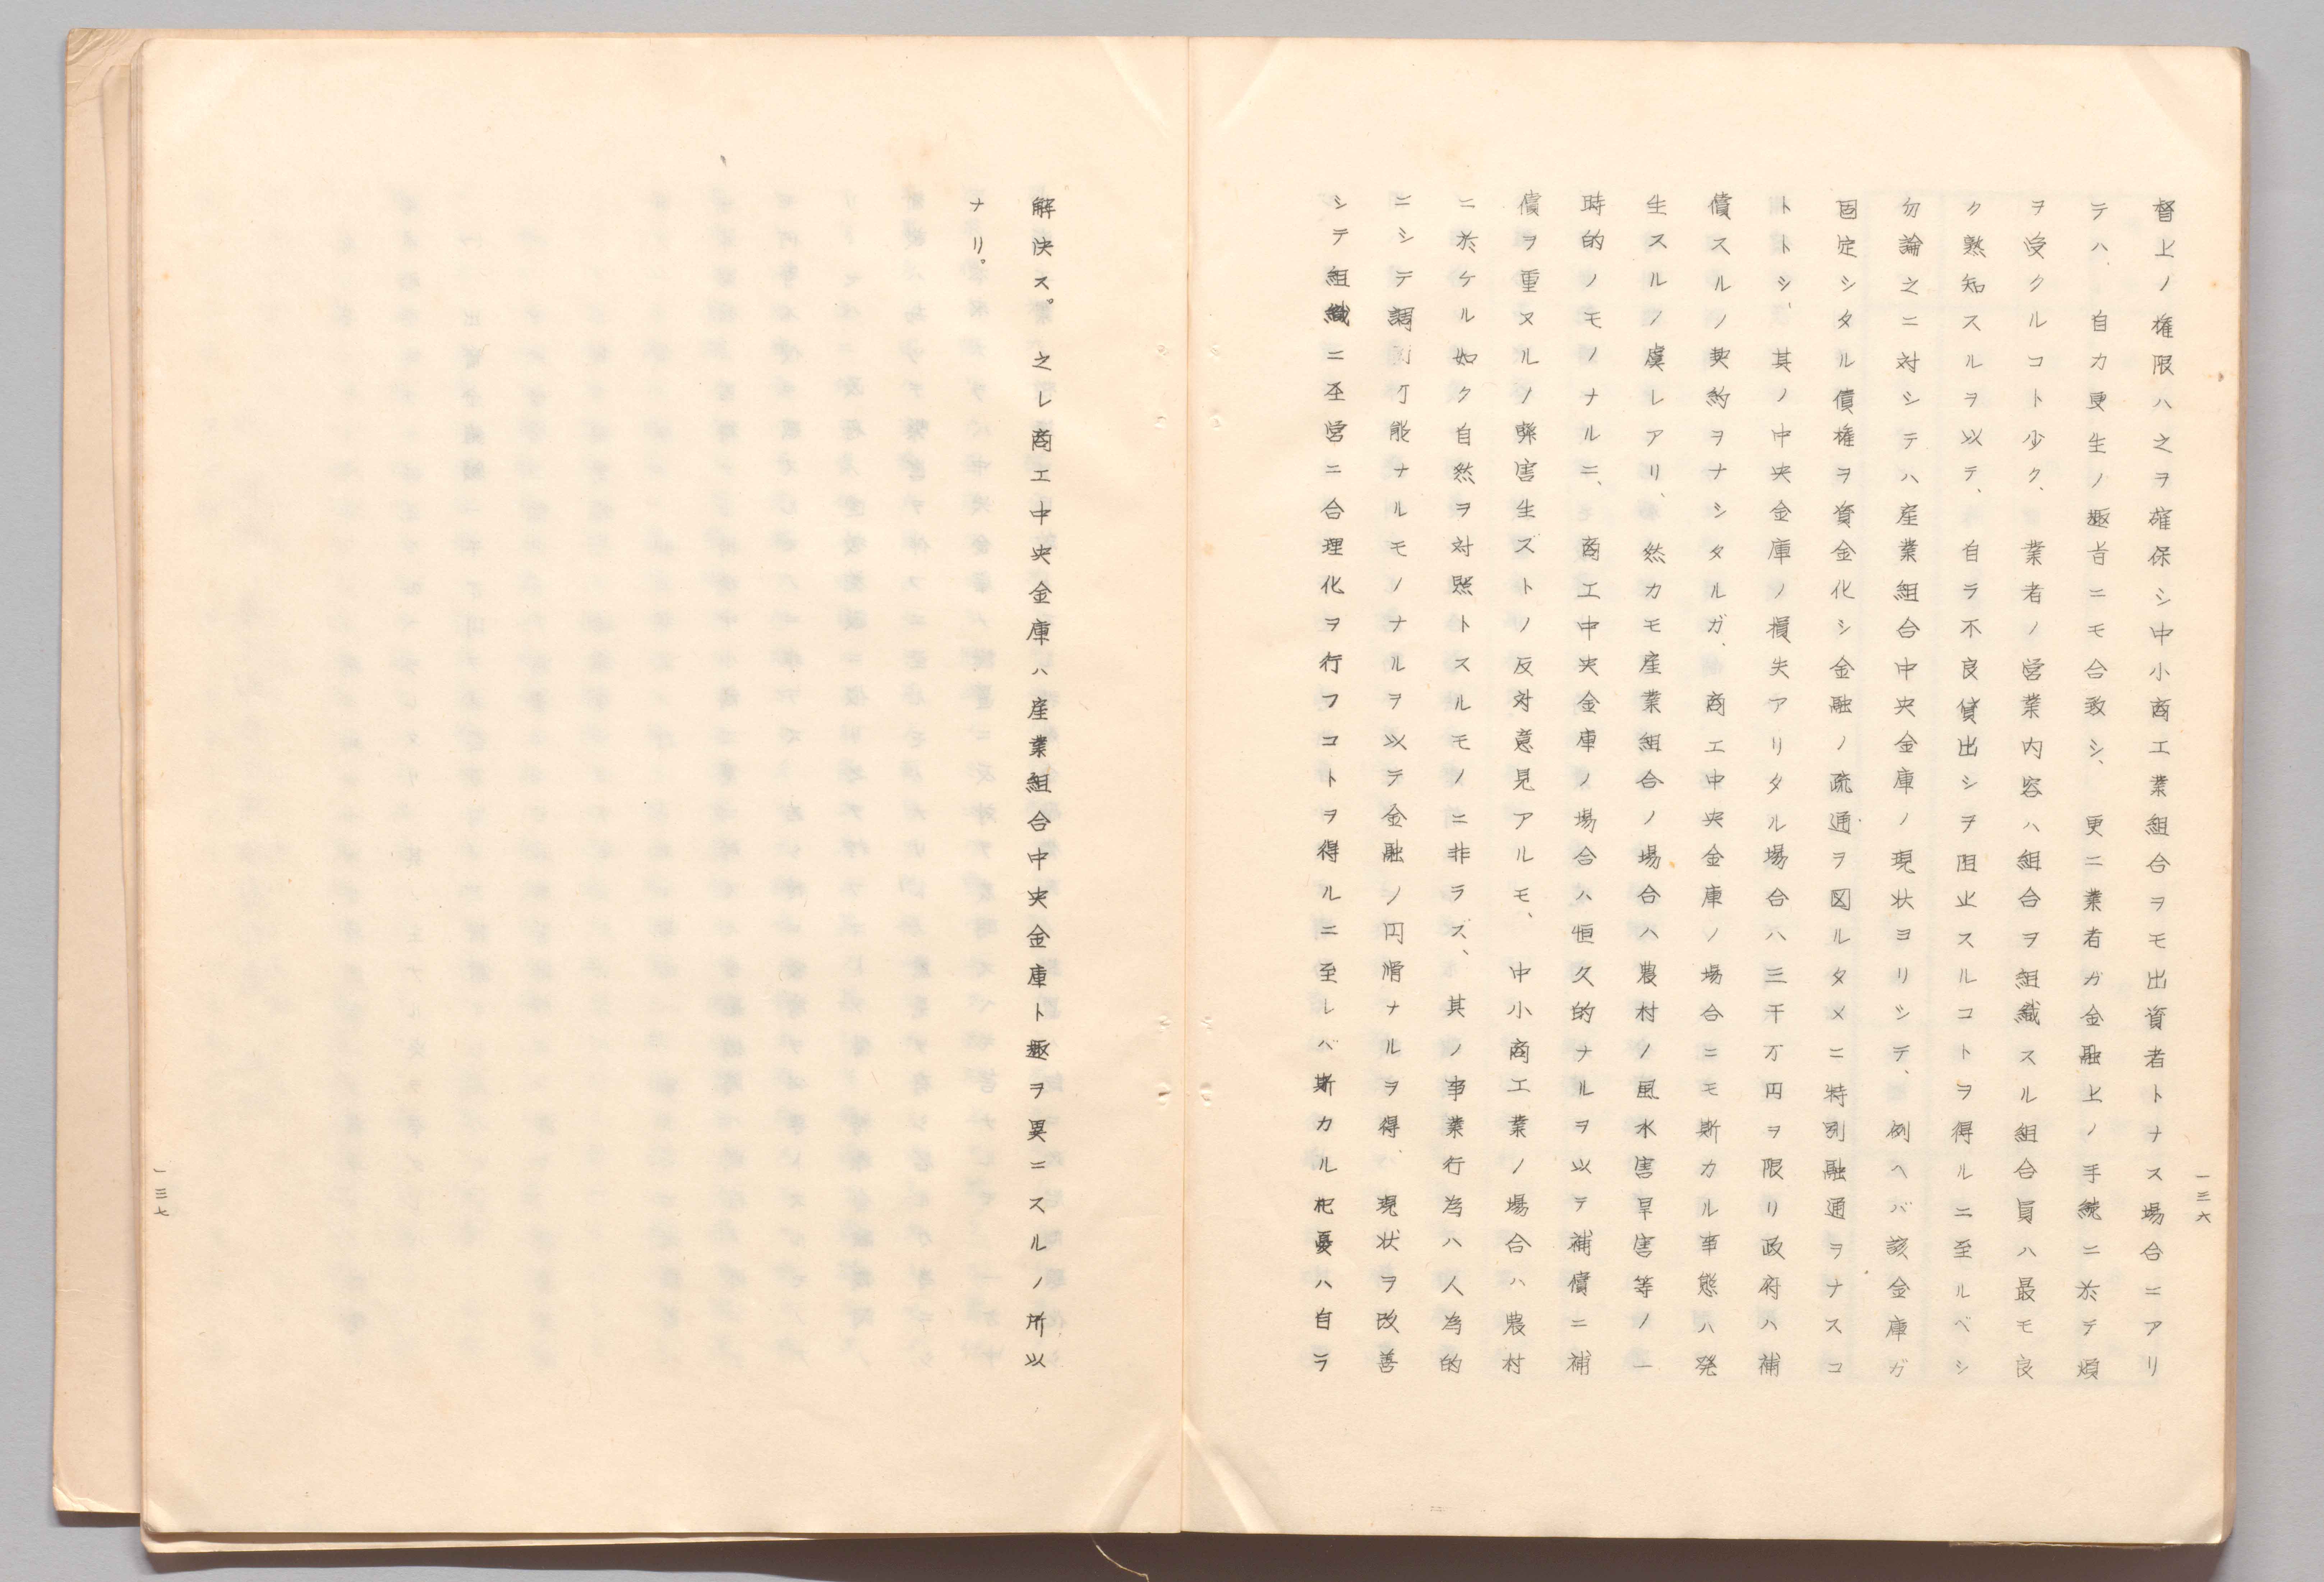 督上ノ権限ハ之ヲ確保シ中小商工業組合ヲモ出資者トナス場合ニアリ
テハ、自カ更生ノ趣旨ニモ合致シ、更ニ業者ガ金融上ノ手続ニ於テ煩
ヲ受クルコト少ク、業者ノ営業内容ハ組合ヲ組織スル組合員ハ最モ良
ク熟知スルヲ以テ、自ラ不良貸出シヲ阻止スルコトヲ得ルニ至ルベシ
勿論之ニ対シテハ産業組合中央金庫ノ現状ヨリシテ、例ヘバ該金庫ガ
固定シタル債権ヲ資金化シ金融ノ疏通ヲ図ルタメニ特別融通ヲナスコ
トトシ、其ノ中央金庫ノ損失アリタル場合ハ三千万円ヲ限リ政府ハ補
償スルノ契約ヲナシタルガ、商工中央金庫ノ場合ニモ斯カル事態ハ発
生スルノ虞レアリ、然カモ産業組合ノ場合ハ農村ノ風水害旱害等ノ一
時的ノモノナルニ、商工中央金庫ノ場合ハ恒久的ナルヲ以テ補償ニ補
償ヲ重ヌルノ弊害生ズトノ反対意見アルモ、中小商工業ノ場合ハ農村
ニ於ケル如ク自然ヲ対照トスルモノニ非ラズ、其ノ事業行為ハ人為的
ニシテ調 可能ナルモノナルヲ以テ金融ノ円滑ナルヲ得、現状ヲ改善
シテ組織ニ至営ニ合理化ヲ行フコトヲ得ルニ至レバ斯カル杞憂ハ自ラ
一三六
解決ス。之レ商工中央金庫ハ産業組合中央金庫ト趣ヲ異ニスルノ所以
ナリ。
一三七